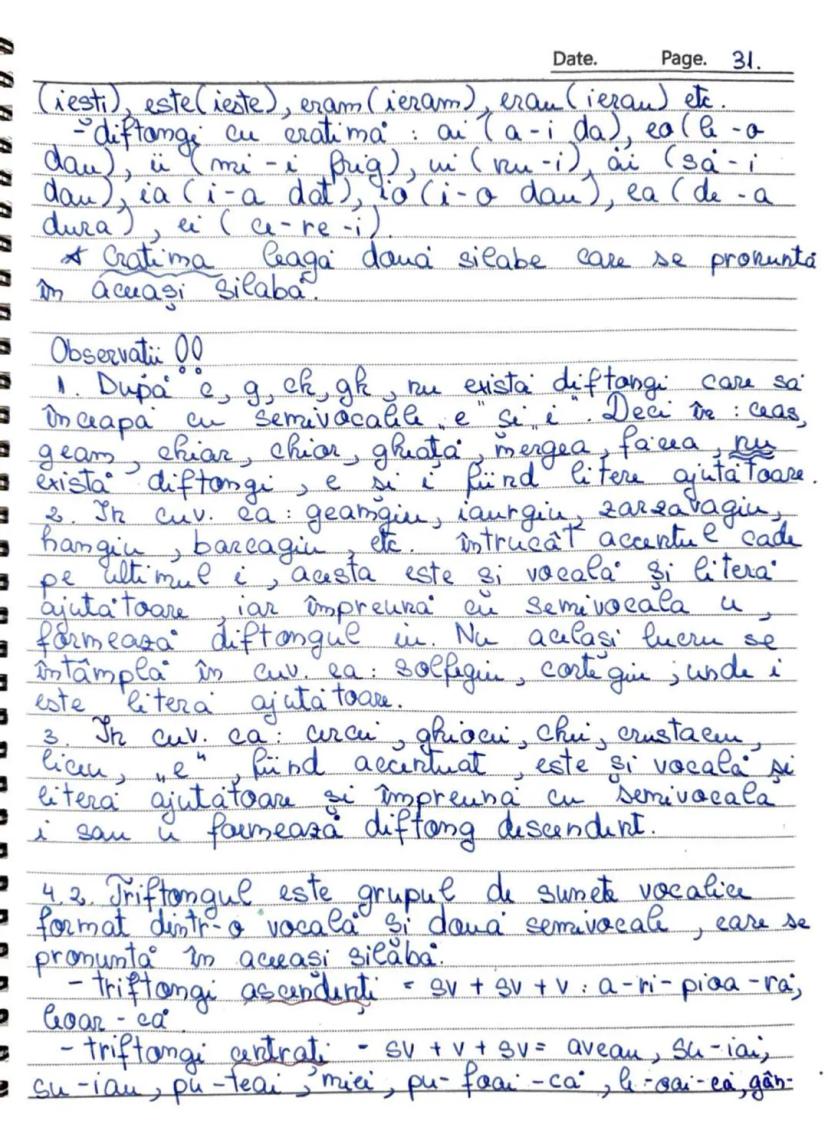 Date. Page. 31.
(iesti), este(ieste), eram(ieram), erau(ierau) etc.
- diftongi cu cratimă : ai (a-i da), eo(le-o
dau), ii (mi-i frig), ui (nu-i), ăi (să-i
dau), ia (i-a dat), io (i-o dau), ea (de-a
dura), ei (ce-re-i).
* Cratima leagă două silabe care se pronuntă
în aceuași silabă.
Observatii 00
1. După c, g, ch, gh, nu există diftongi care să
înceapă cu semivocalele „e" și „i". Deci în : ceas,
geam, chiar, chior, ghiață, mergea, făcea, nu
există diftongi, e și i fiind litere ajutătoare.
2. In cuv. ca : geamgiu, iaurgiu, zarzavagiu,
hangiu, barcagiu, etc. întrucât accentul cade
pe ultimul i, acesta este și vocală și literă
ajutătoare, iar împreună cu semivocala u,
formează diftongul iu. Nu același lucru se
întâmplă în cuv. ca : solfegiu, cortegiu ; unde i
este literă ajutătoare.
3. In cuv. ca : cercei, ghiocei, chei, crustaceu,
liceu, „e", fiind accentuat, este și vocală și
literă ajutătoare și împreună cu semivocala
i sau u formează diftong descendent.
4.2. Triftongul este grupul de sunete vocalice
format dintr-o vocală și două semivocale, care se
pronuntă în aceeasi silăbă.
- triftongi ascendenți = sv + sv + v : a-ri-pioa-ră,
leoar-că
- triftongi centrați - sv + v + sv = aveau, su-iai,
su-iau, pu-teai, miei, pu-foai-că, le-oai-că, gân-